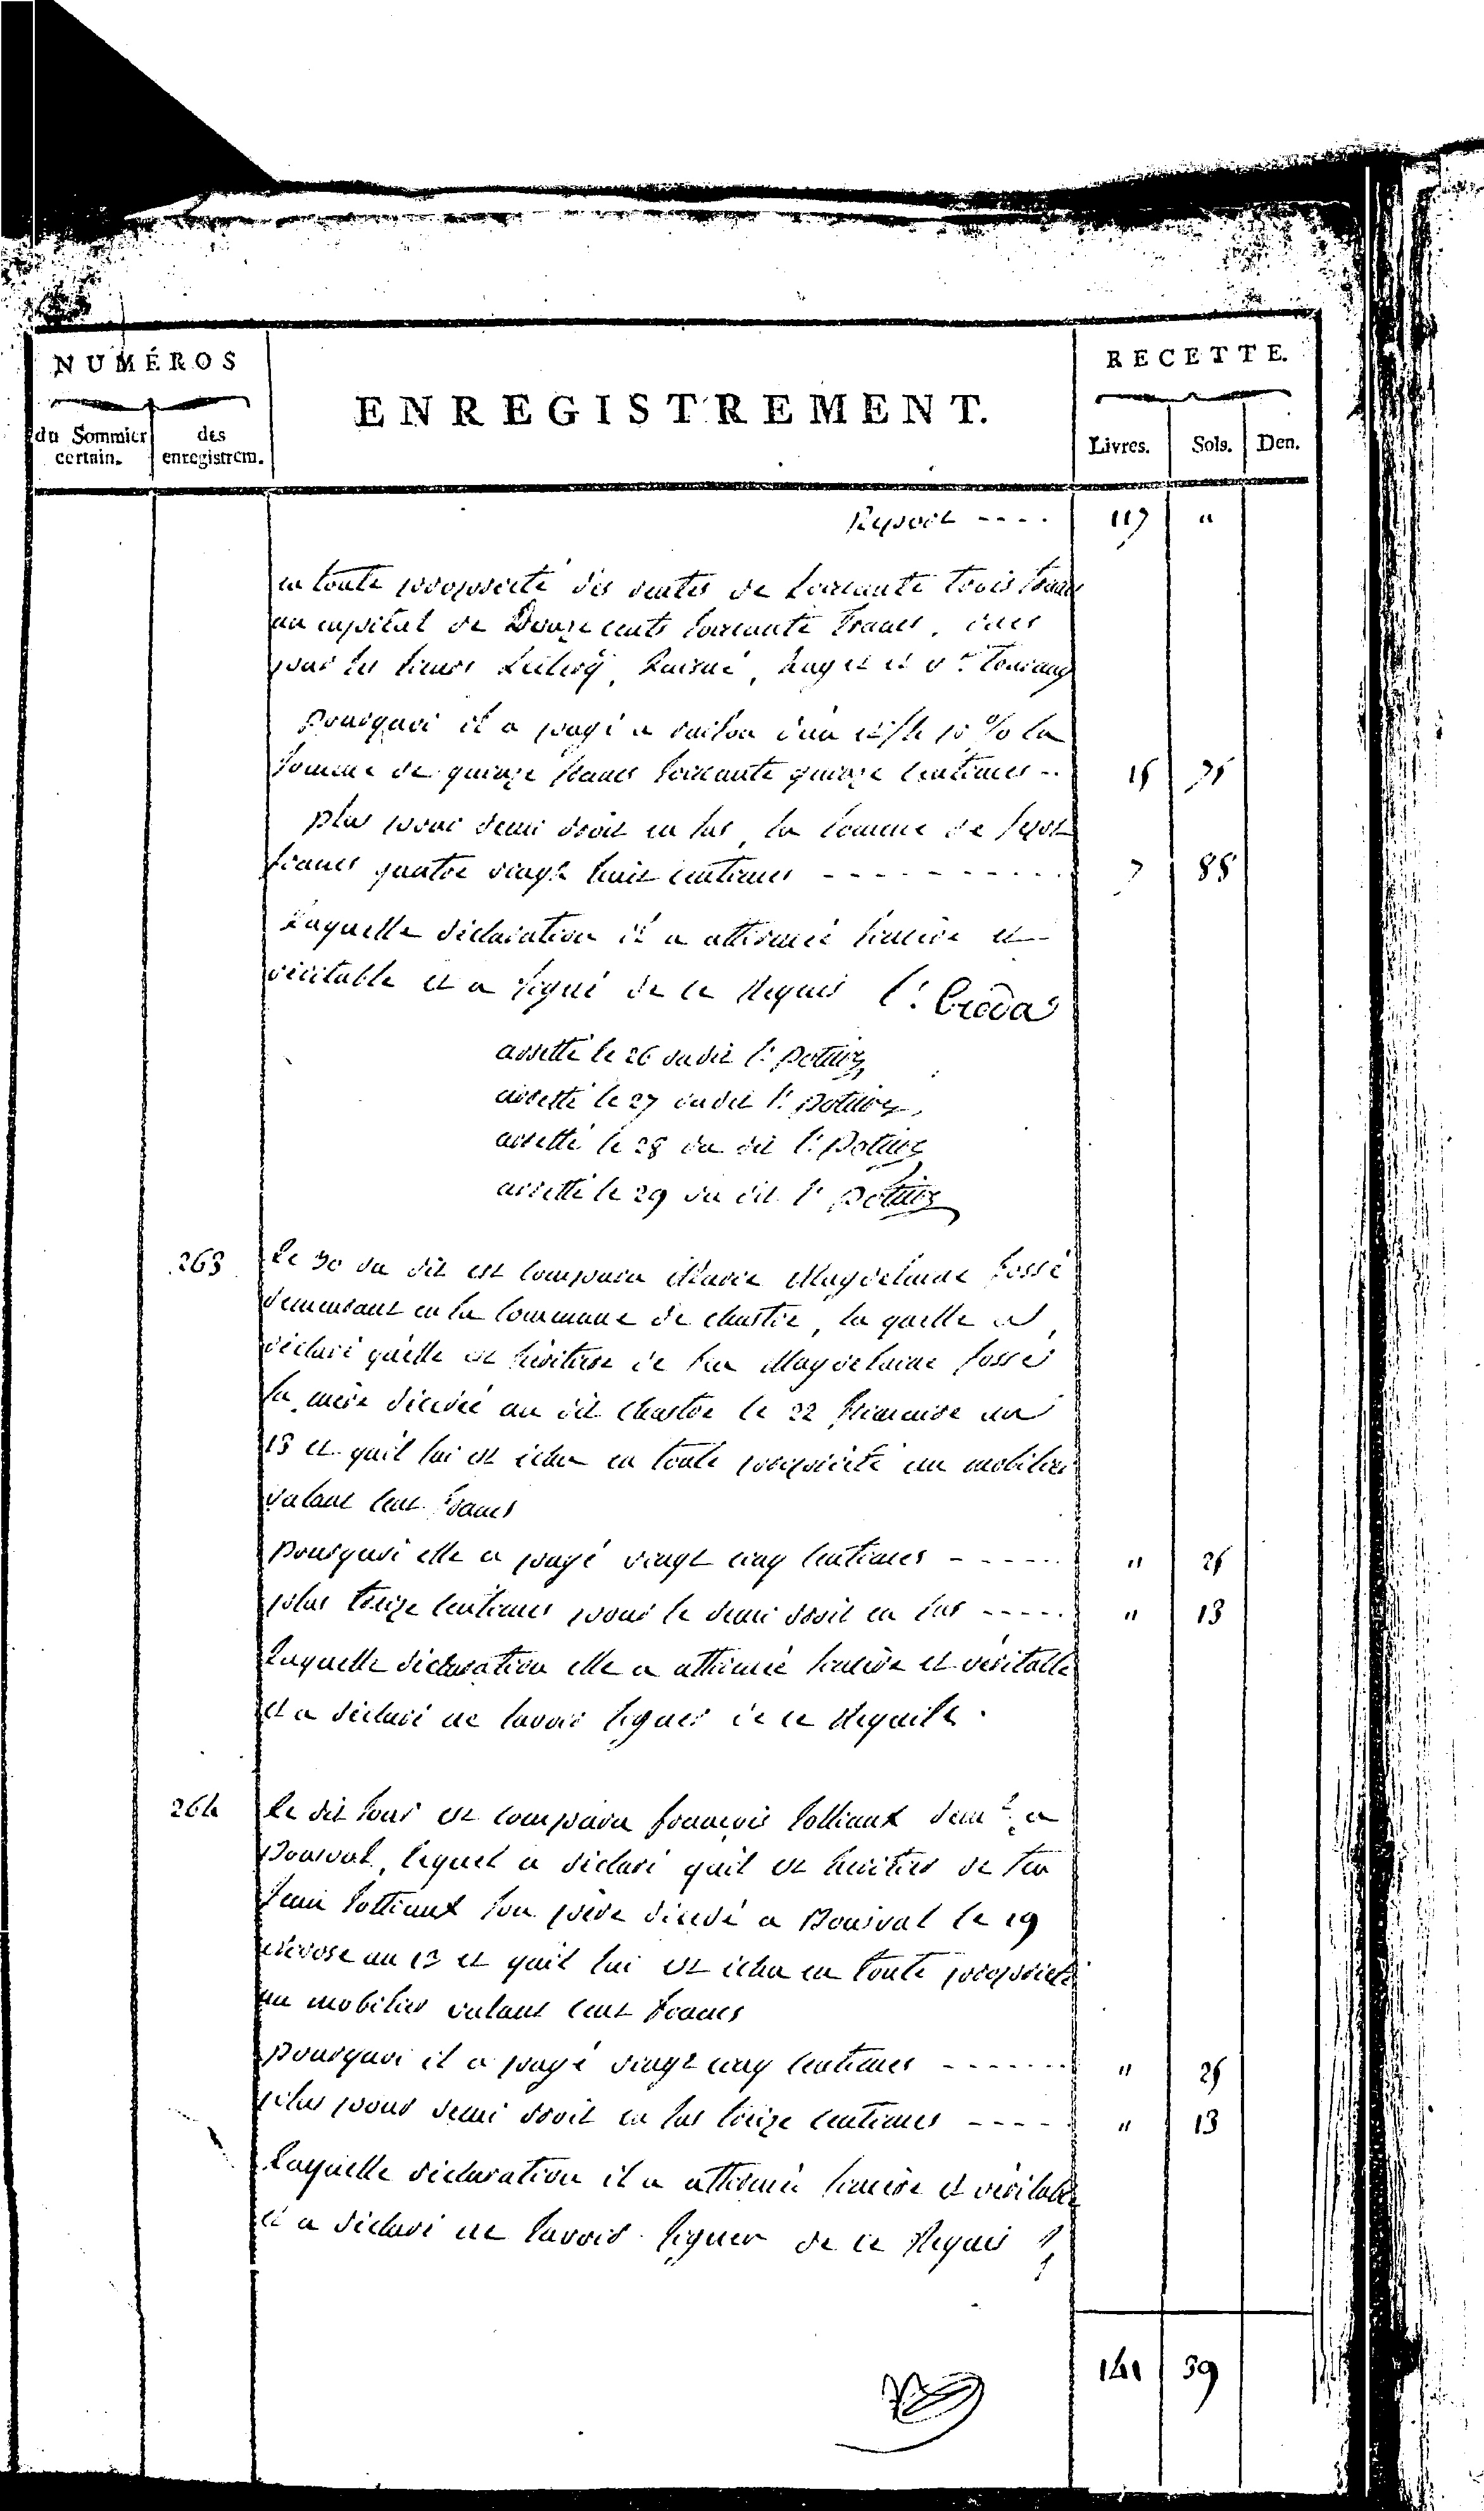 NUMÉROS
RECETTE.
ENREGISTREMENT.
du Sommier certain.
des enregistrem.
Livres. Sols. Den.
Report ---- 117 "
en toute propriété des rentes de soixante trois francs
au capital de Douze cents soixante francs, dues
par les sieurs Leclercq,
pourquoi il a payé a raison d'un et 1/4 p % la
somme de quinze francs soixante quinze centimes -- 15 75
plus pour demi droit en sus, la somme de sept
francs quatre vingt huit centimes ---------- 7 88
Laquelle déclaration il a affirmée sincère et
véritable et a signé de ce Requis
arretté le 26 du dit
arretté le 27 du dit
arretté le 28 du dit
arretté le 29 du dit
263 Le 30 du dit est comparu Marie Magdelaine fossé
demeurant en la commune de chastre, la quelle a
déclaré quelle est héritière de feu Magdelaine fossé
sa mère décédée au dit chastre le 22 frimaire an
13 et quil lui est échu en toute propriété un mobilier
valant cent francs
pourquoi elle a payé vingt cinq centimes ------ " 25
plus treize centimes pour le demi droit en sus ----- " 13
Laquelle déclaration elle a affirmée sincère et véritable
et a déclaré ne savoir signer de ce Requise.
264 Le dit jour est comparu françois Lottiaux demt. a
Bousval, lequel a déclaré quil est héritier de feu
Lottiaux son père décédé a Bousval le 19
nivose an 13 et quil lui est échu en toute propriété
un mobilier valant cent francs
pourquoi il a payé vingt cinq centimes ------- " 25
plus pour demi droit en sus treize centimes ---- " 13
Laquelle déclaration il a affirmée sincère et véritable
et a déclaré ne savoir signer de ce Requis
141 39